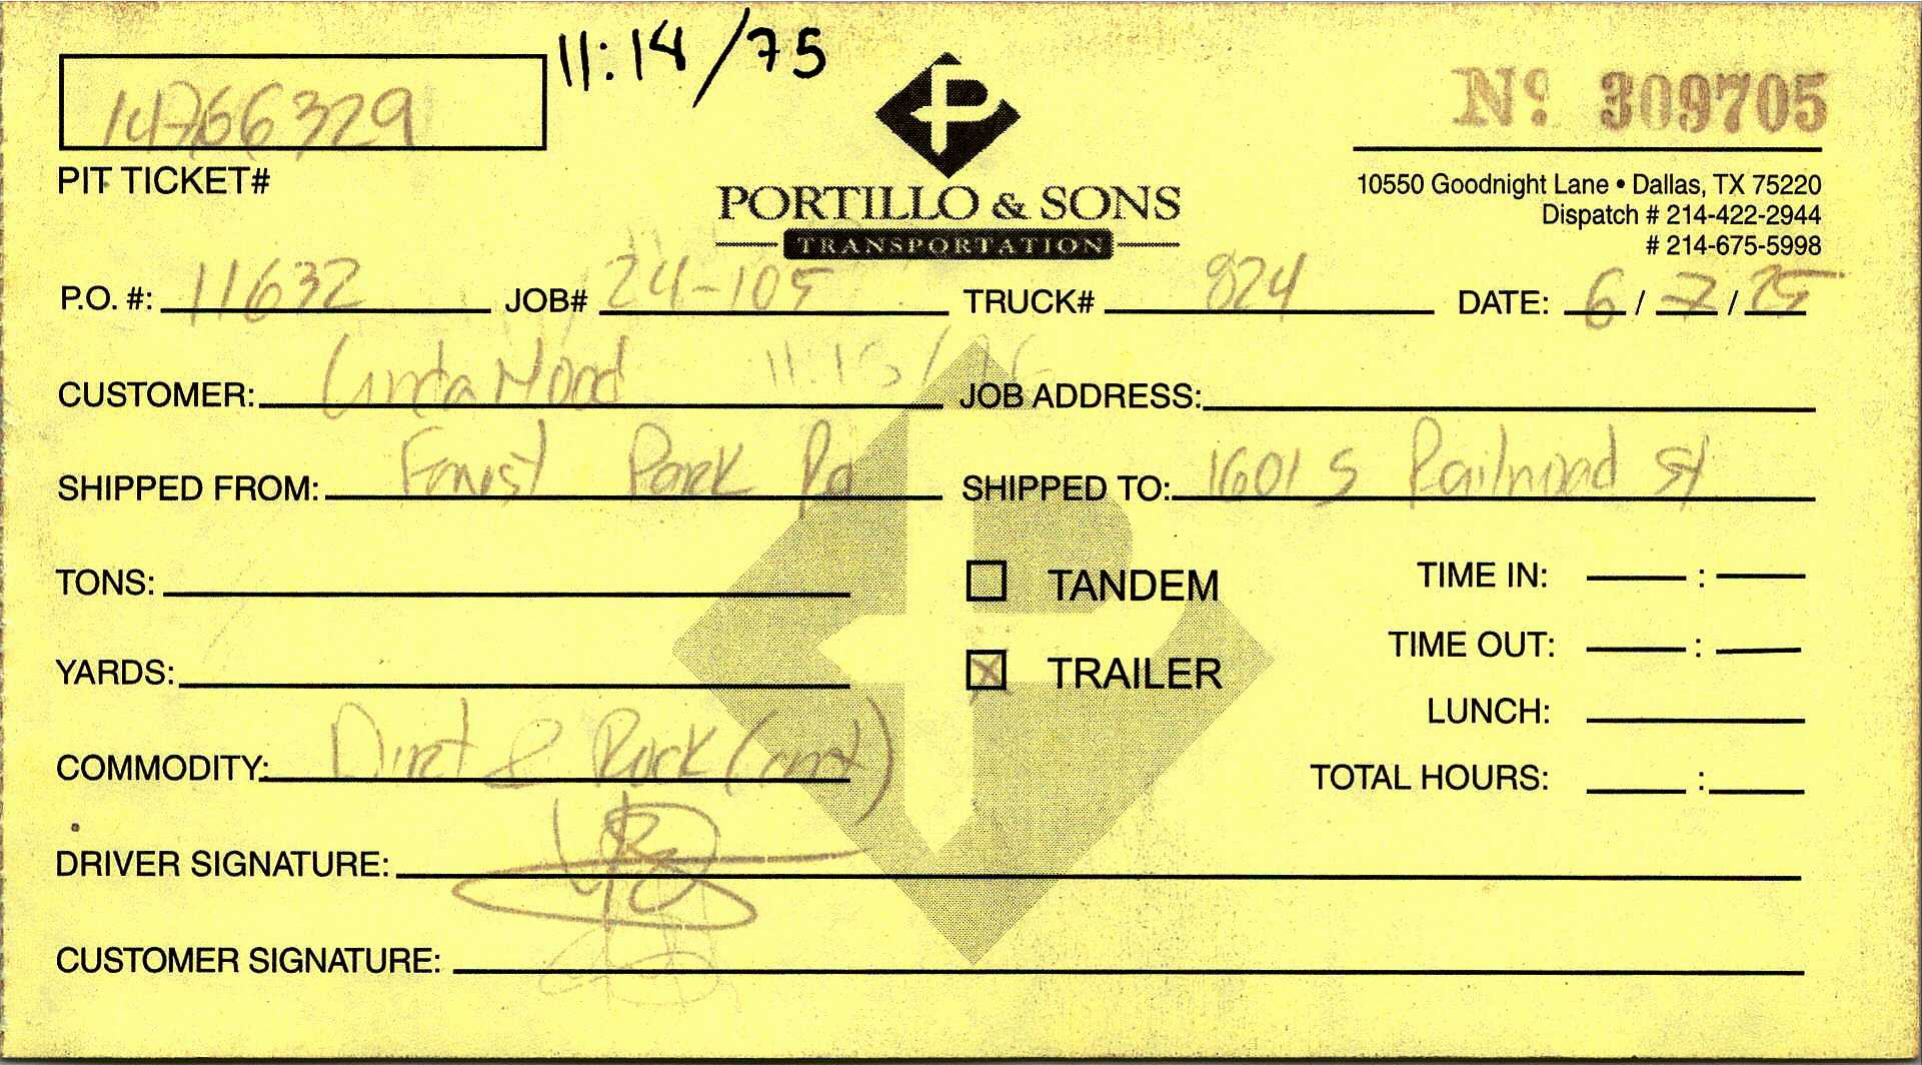 11:14/75
14766329
PIT TICKET#
P
PORTILLO & SONS
TRANSPORTATION
Nº 309705
10550 Goodnight Lane • Dallas, TX 75220
Dispatch # 214-422-2944
# 214-675-5998
P.O. #: 11632 JOB# 24-105 TRUCK# 824 DATE: 6 / 7 / 25
11:15/76
CUSTOMER: Linda Mood JOB ADDRESS:
SHIPPED FROM: Forest Park Rd SHIPPED TO: 1601 S Railroad St
TONS: TANDEM TIME IN: :
YARDS: X TRAILER TIME OUT: :
LUNCH:
COMMODITY: Dirt & Rock TOTAL HOURS: :
DRIVER SIGNATURE:
CUSTOMER SIGNATURE: